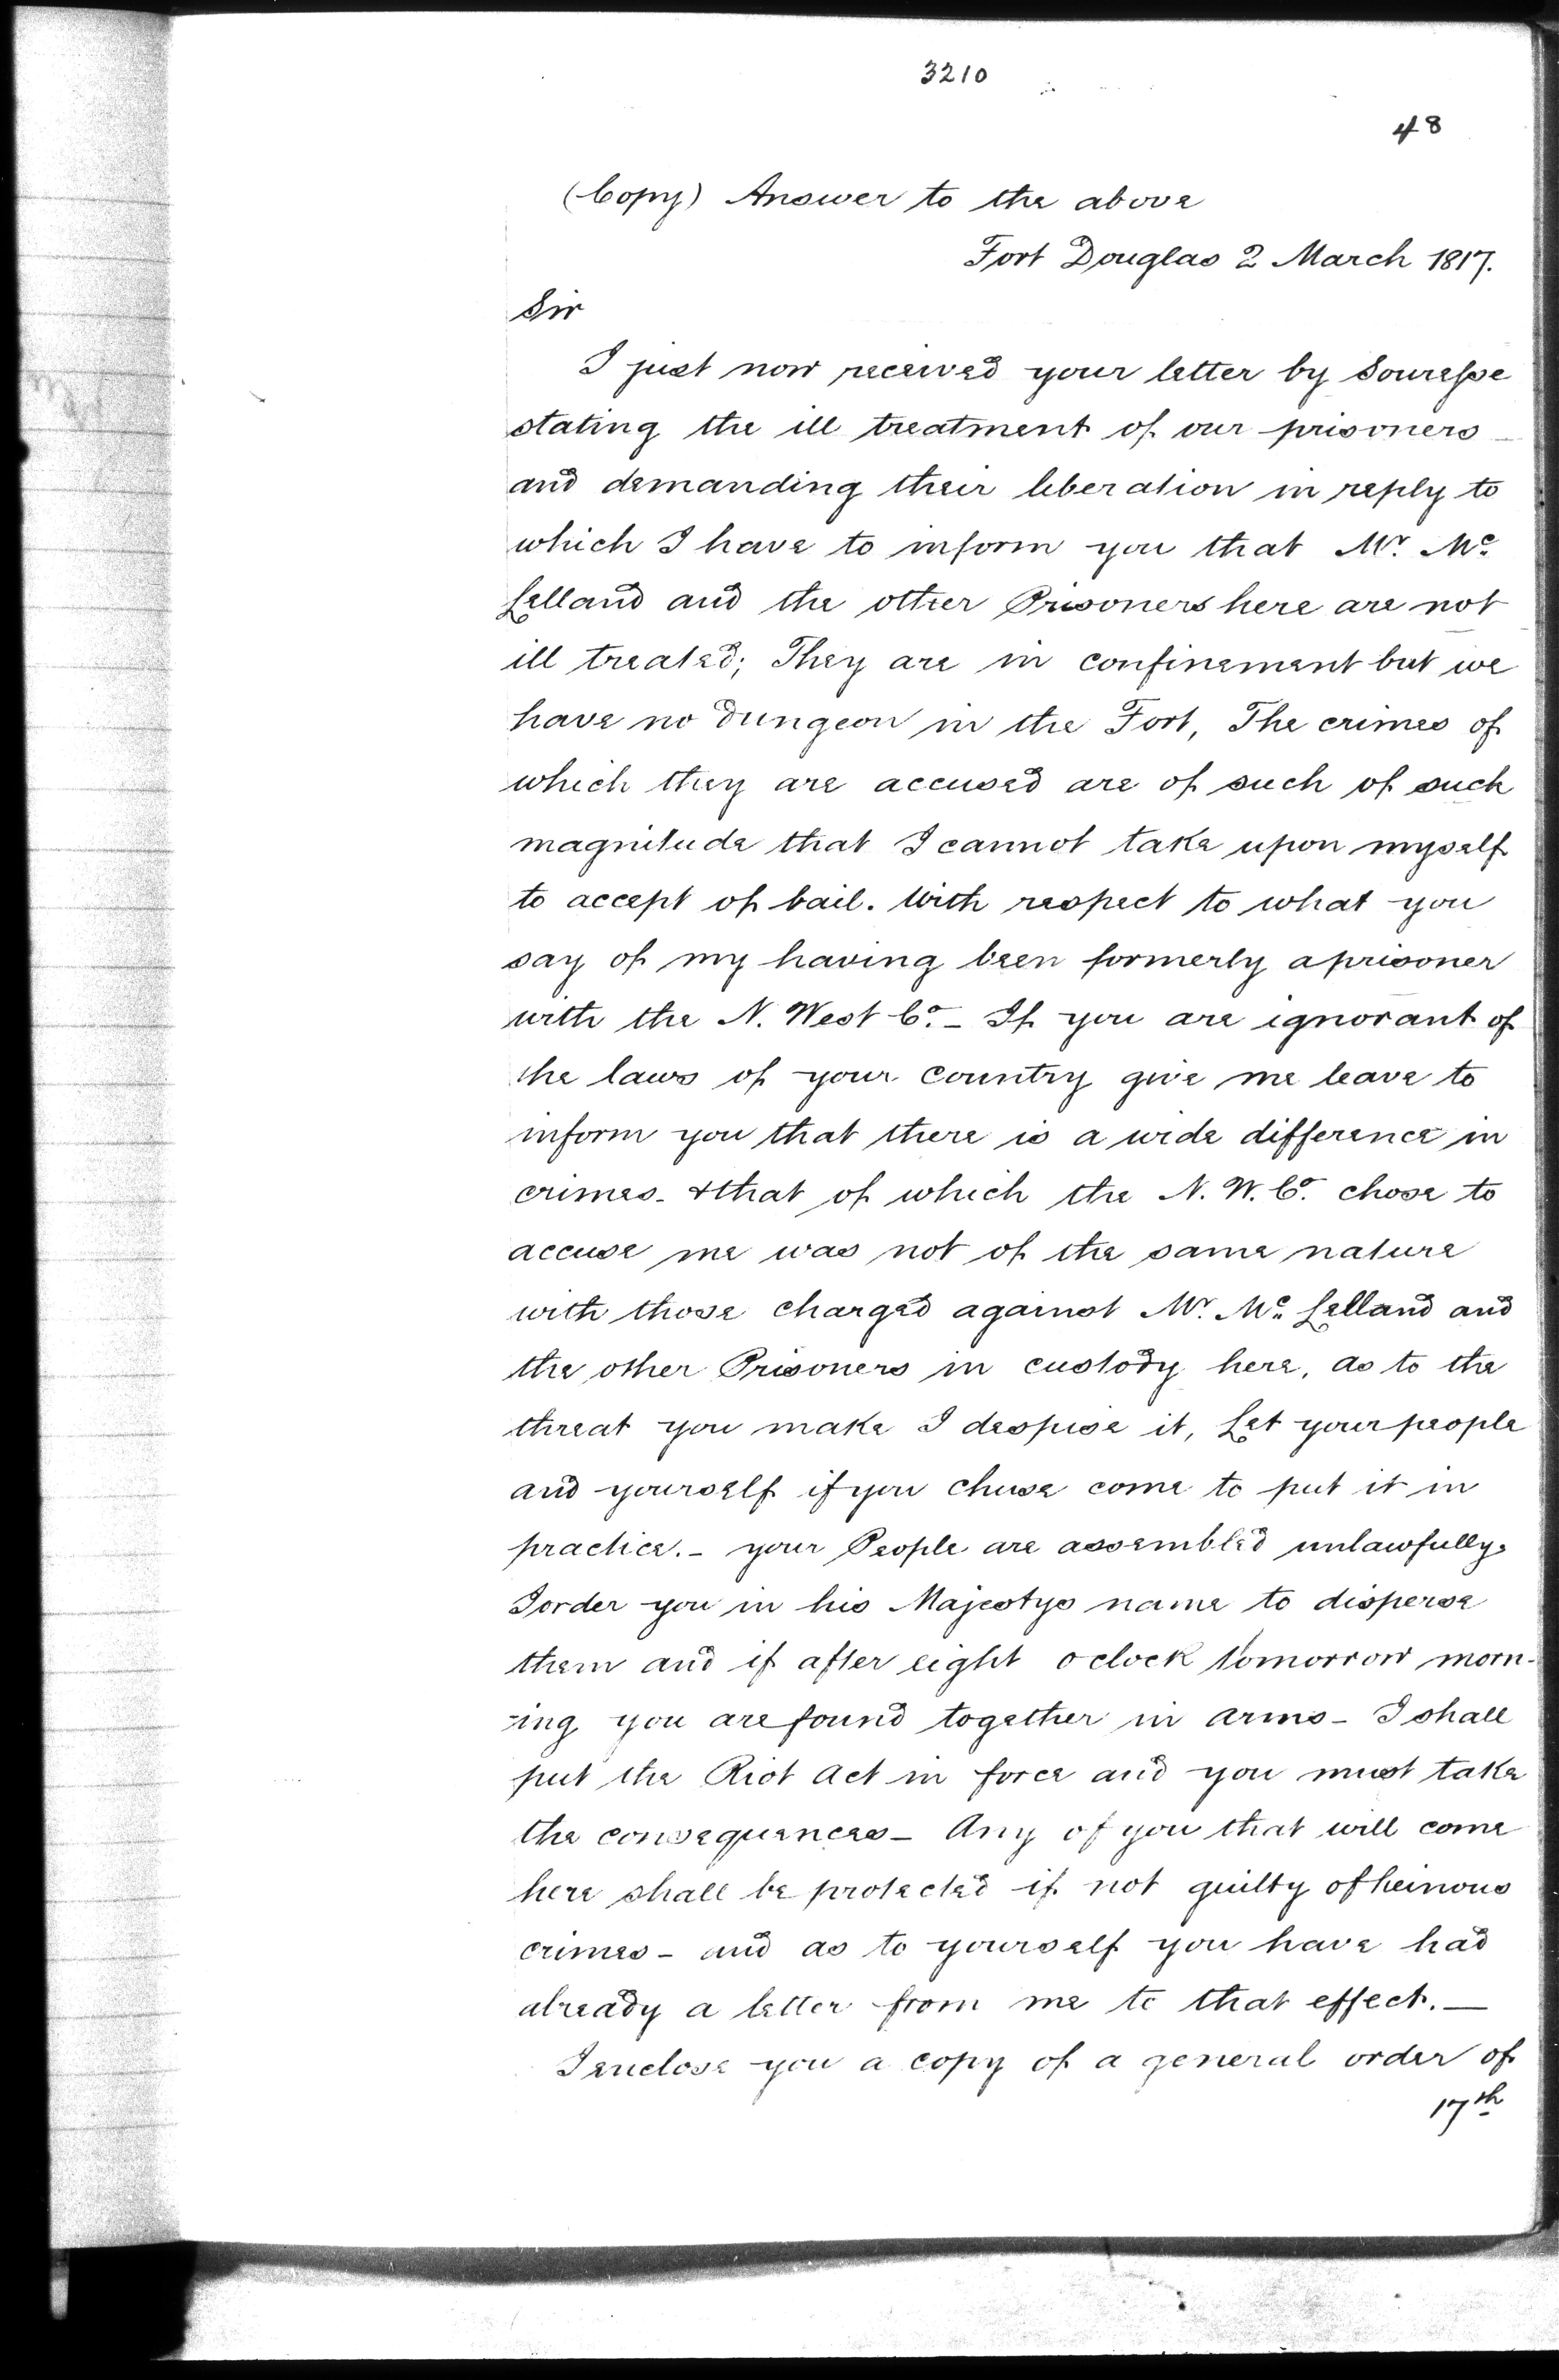 3210
48
(Copy) Answer to the above
Fort Douglas 2 March 1817.
Sir
I just now received your letter by Souresse
stating the ill treatment of our prisoners
and demanding their liberation in reply to
which I have to inform you that Mr. Mc
Lelland and the other Prisoners here are not
ill treated; They are in confinement but we
have no dungeon in the Fort, The crimes of
which they are accused are of such of such
magnitude that I cannot take upon myself
to accept of bail. With respect to what you
say of my having been formerly a prisoner
with the N. West Co. - If you are ignorant of
the laws of your country give me leave to
inform you that there is a wide difference in
crimes - & that of which the N. W. Co. chose to
accuse me was not of the same nature
with those charged against Mr. Mc Lelland and
the other Prisoners in custody here, as to the
threat you make I despise it, Let your people
and yourself if you chuse come to put it in
practice. - your People are assembled unlawfully.
I order you in his Majestys name to disperse
them and if after eight o clock tomorrow morn-
-ing you are found together in arms - I shall
put the Riot Act in force and you must take
the consequences - Any of you that will come
here shall be protected if not guilty of heinous
crimes - and as to yourself you have had
already a letter from me to that effect. —
I enclose you a copy of a general order of
17th